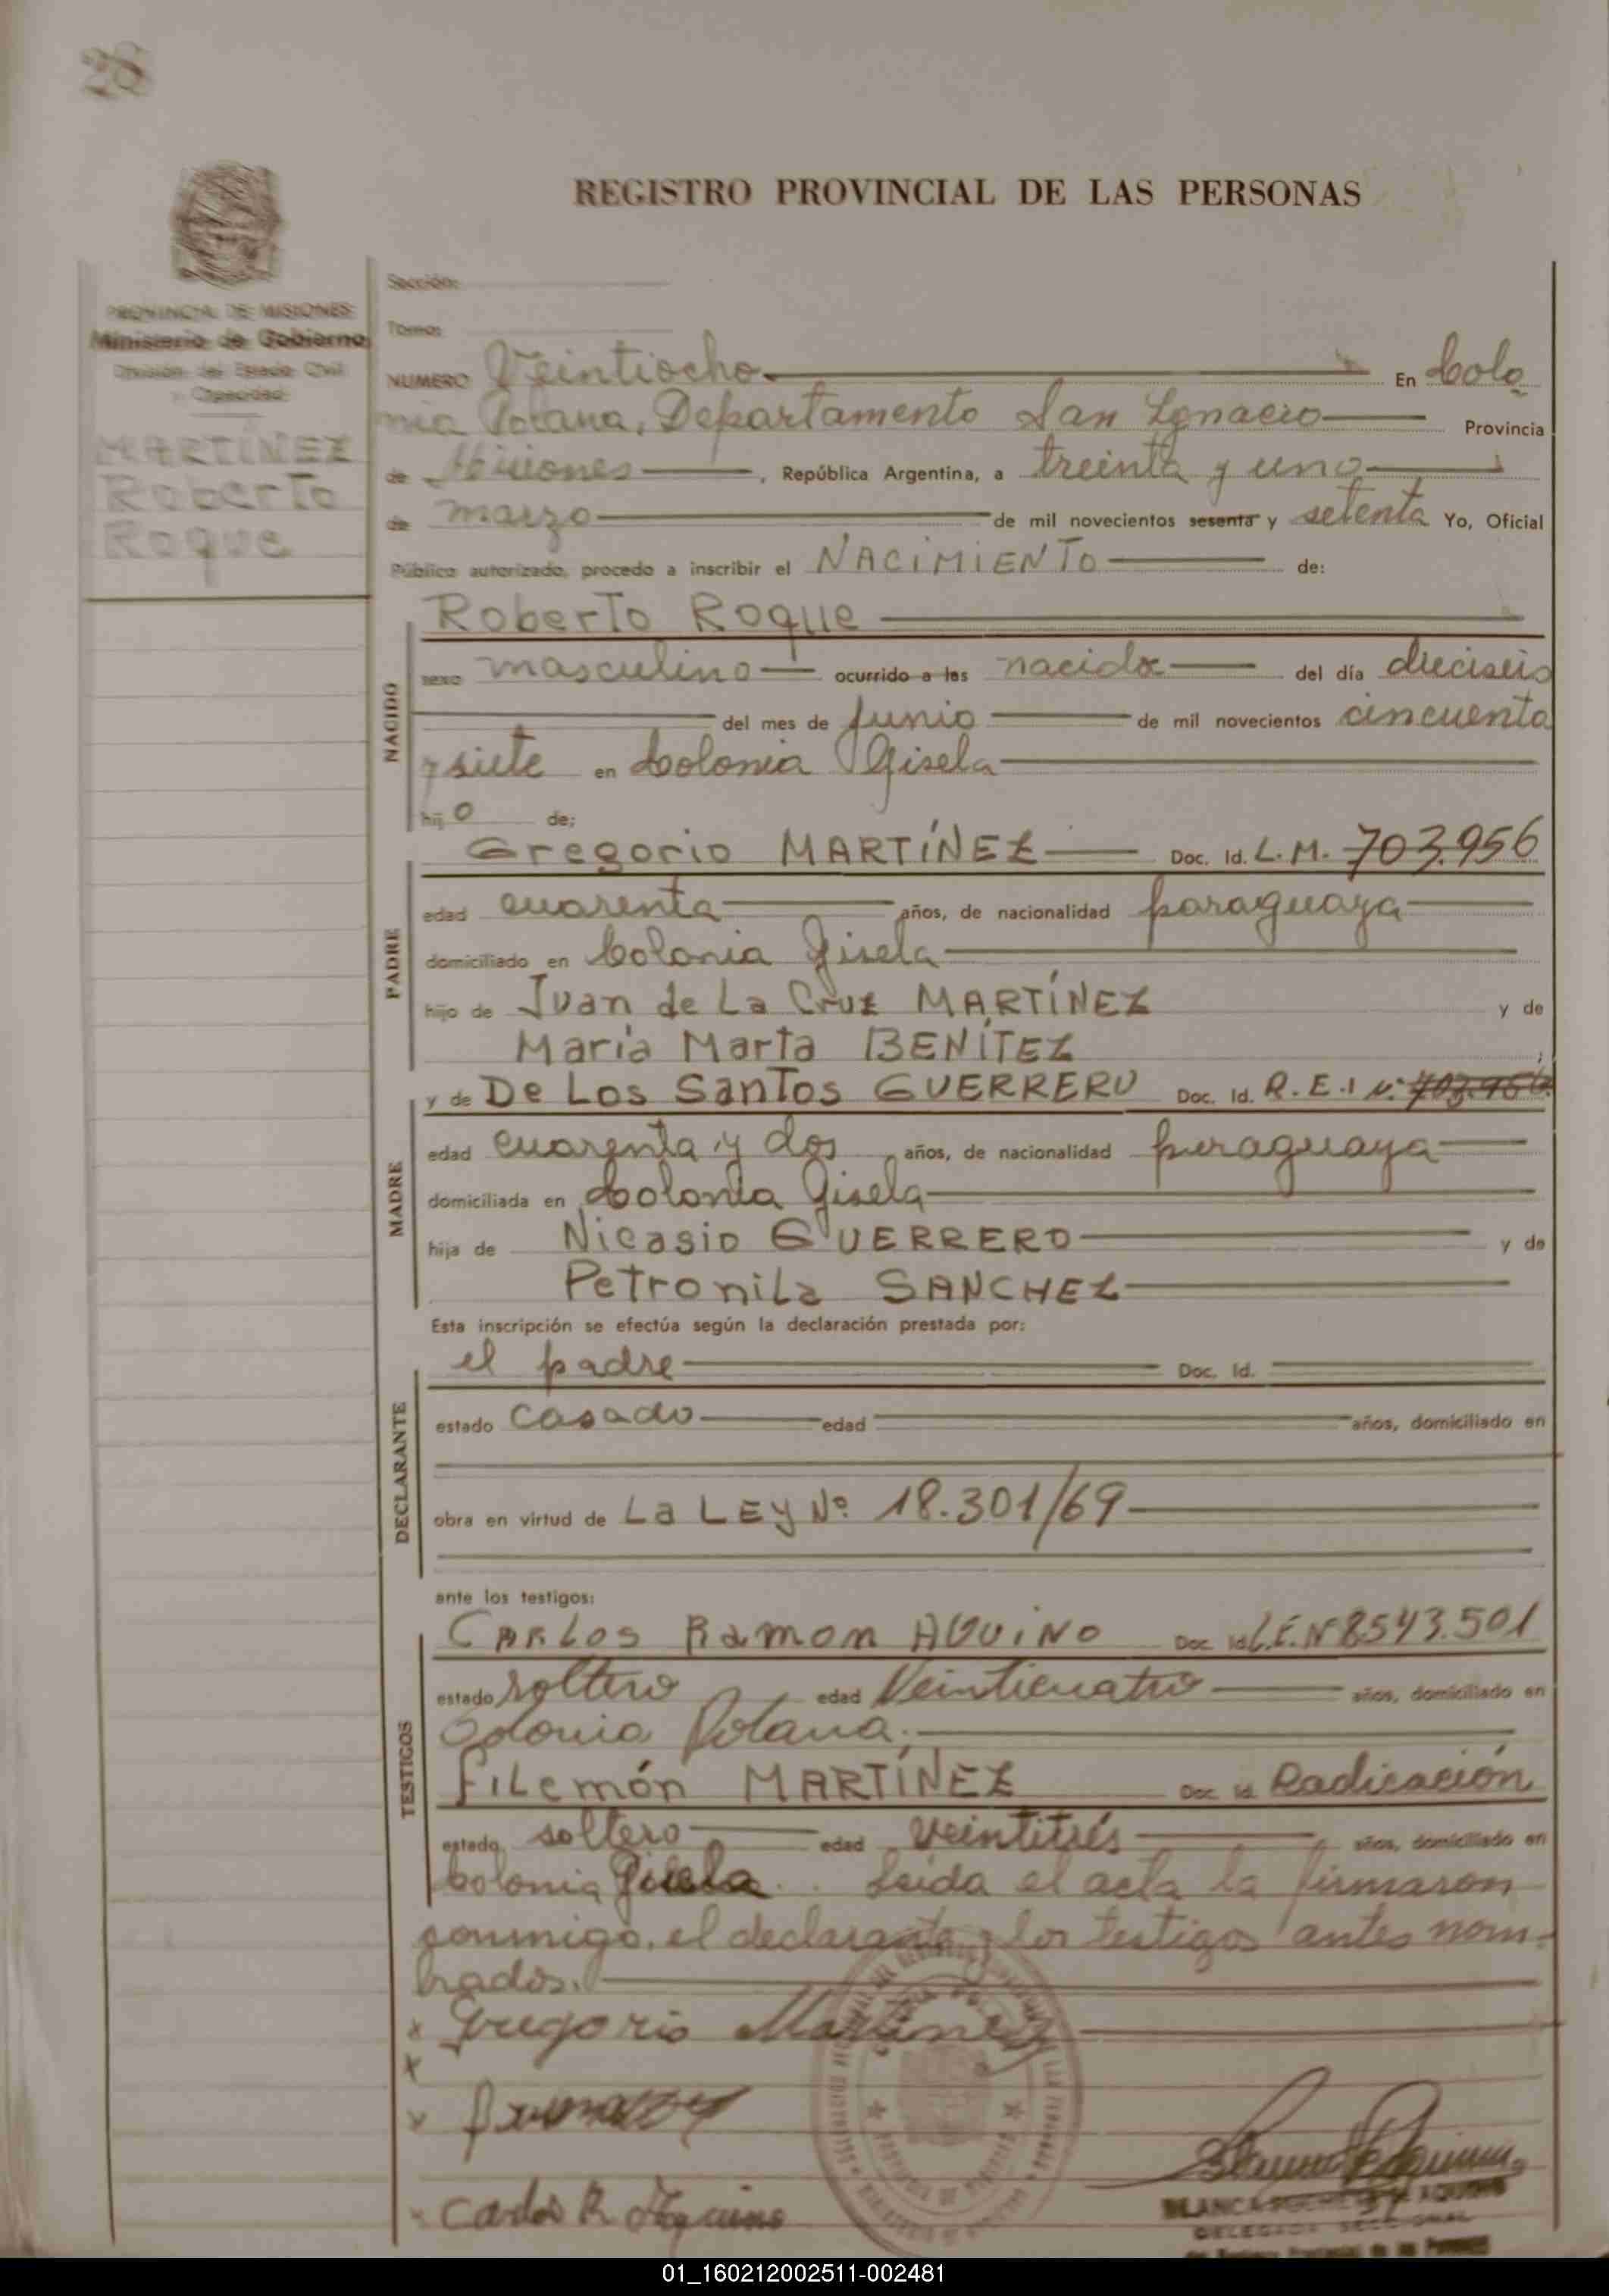 28
REGISTRO PROVINCIAL DE LAS PERSONAS
PROVINCIA DE MISIONES
Ministerio de Gobierno
División del Estado Civil
y Capacidad
MARTÍNEZ
Roberto
Roque
Sección:
Tomo:
NUMERO Veintiocho En Colo
nia Polana, Departamento San Ignacio Provincia
de Misiones, República Argentina, a treinta y uno
de marzo de mil novecientos sesenta y setenta Yo, Oficial
Público autorizado, procedo a inscribir el NACIMIENTO de:
NACIDO
Roberto Roque
sexo masculino ocurrido a las nacido del día dieciseis
del mes de Junio de mil novecientos cincuenta
y siete en Colonia Gisela
hij o de:
PADRE
Gregorio MARTÍNEZ Doc. Id. L.M. 703.956
edad cuarenta años, de nacionalidad paraguaya
domiciliado en Colonia Gisela
hijo de Juan de La Cruz MARTÍNEZ y de
María Marta BENÍTEZ ;
MADRE
y de De Los Santos GUERRERO Doc. Id. R.E.I N° 703.956
edad cuarenta y dos años, de nacionalidad paraguaya
domiciliada en Colonia Gisela
hija de Nicasio GUERRERO y de
Petronila SANCHEZ
Esta inscripción se efectúa según la declaración prestada por:
DECLARANTE
el padre Doc. Id.
estado casado edad años, domiciliado en
obra en virtud de La LEY Nº 18.301/69
ante los testigos:
TESTIGOS
Carlos Ramon AQUINO Doc Id L.E.Nº 8543.501
estado soltero edad Veinticuatro años, domiciliado en
Colonia Polana.
Filemón MARTÍNEZ Doc Id. Radicación
estado soltero edad veintitrés años, domiciliado en
Colonia Gisela. Leída el acta la firmaron
conmigo, el declarante y los testigos antes nom-
brados.
x Gregorio Martinez
x
x
x Carlos R. Aquino
DE AQUINO
DELEGADA SECCIONAL
del Registro Provincial de las Personas
01_160212002511-002481